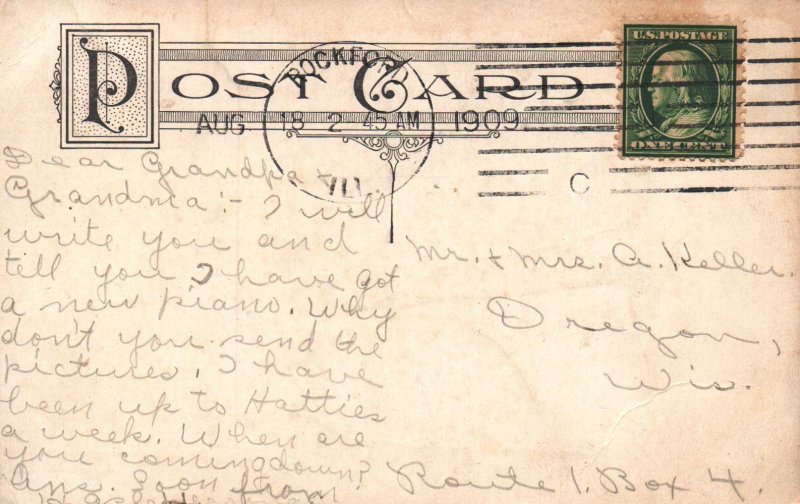 POST CARD
ROCKFORD
AUG 18 2 45 AM 1909
ILL.
C
U.S. POSTAGE
ONE CENT
Dear Grandpa +
Grandma:- I will
write you and
tell you I have got
a new piano. Why
don't you send the
pictures. I have
been up to Hatties
a week. When are
you coming down?
Ans. Soon from
Mr. + Mrs. A. Keller.
Oregon,
Wis.
Route 1. Box 4.